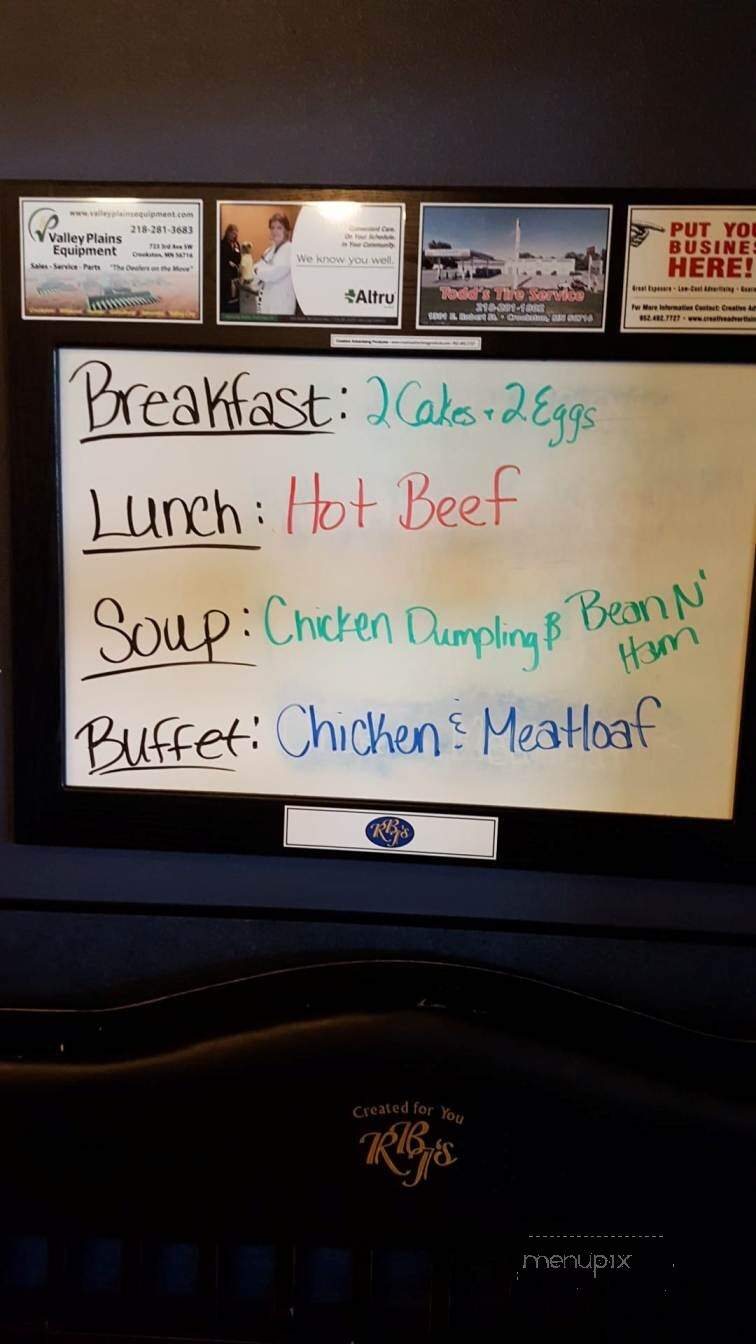 www.valleyplainsequipment.com
Valley Plains Equipment
218-281-3683
723 3rd Ave SW
Crookston, MN 56716
Sales - Service - Parts "The Dealers on the Move"
Convenient Care.
On Your Schedule.
In Your Community.
We know you well.
Altru
Todd's Tire Service
218-281-1802
1501 E. Robert St. • Crookston, MN 56716
PUT YOU
BUSINE
HERE!
Great Exposure • Low-Cost Advertising •
For More Information Contact: Creative Ad
952.492.7727 • www.creativeadvertisin
Breakfast: 2 Cakes + 2 Eggs
Lunch: Hot Beef
Soup: Chicken Dumpling & Bean N'
Ham
Buffet: Chicken & Meatloaf
RBJ's
Created for You
RBJ's
menupix